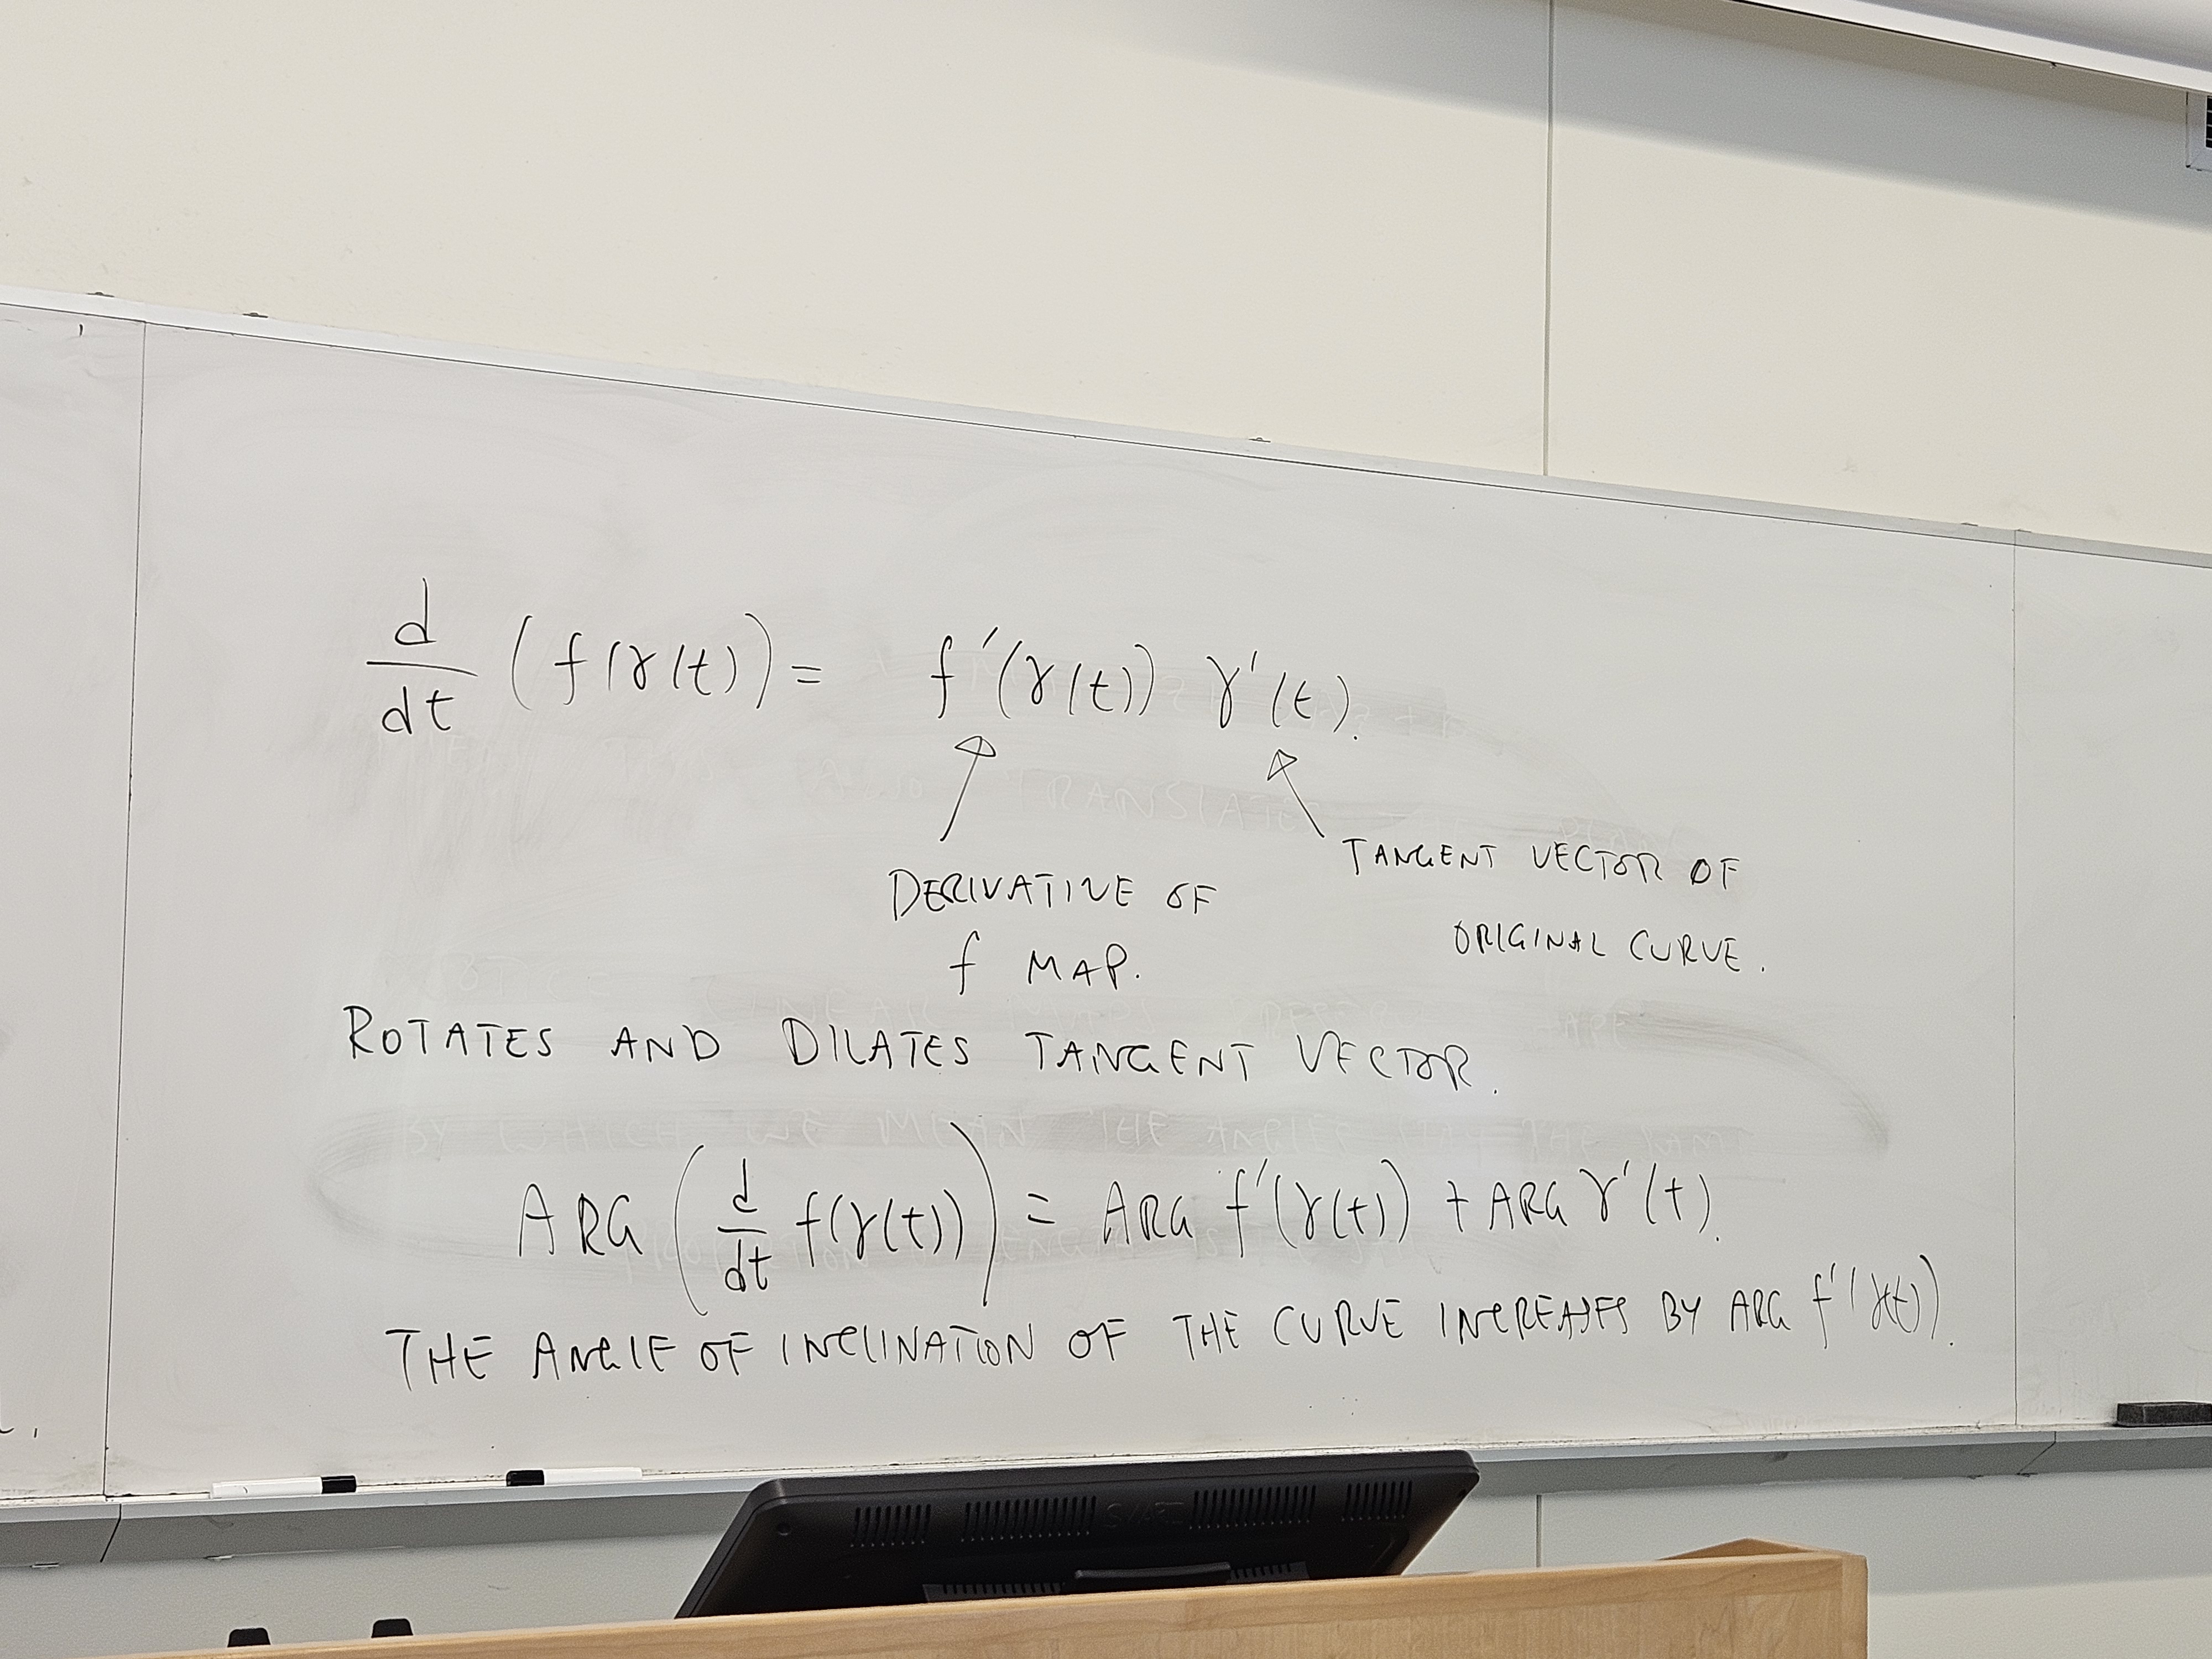 d/dt (f(γ(t)) = f'(γ(t)) γ'(t).
DERIVATIVE OF
f MAP.
TANGENT VECTOR OF
ORIGINAL CURVE.
ROTATES AND DILATES TANGENT VECTOR.
ARG (d/dt f(γ(t))) = ARG f'(γ(t)) + ARG γ'(t).
THE ANGLE OF INCLINATION OF THE CURVE INCREASES BY ARG f'(γ(t)).
SMART